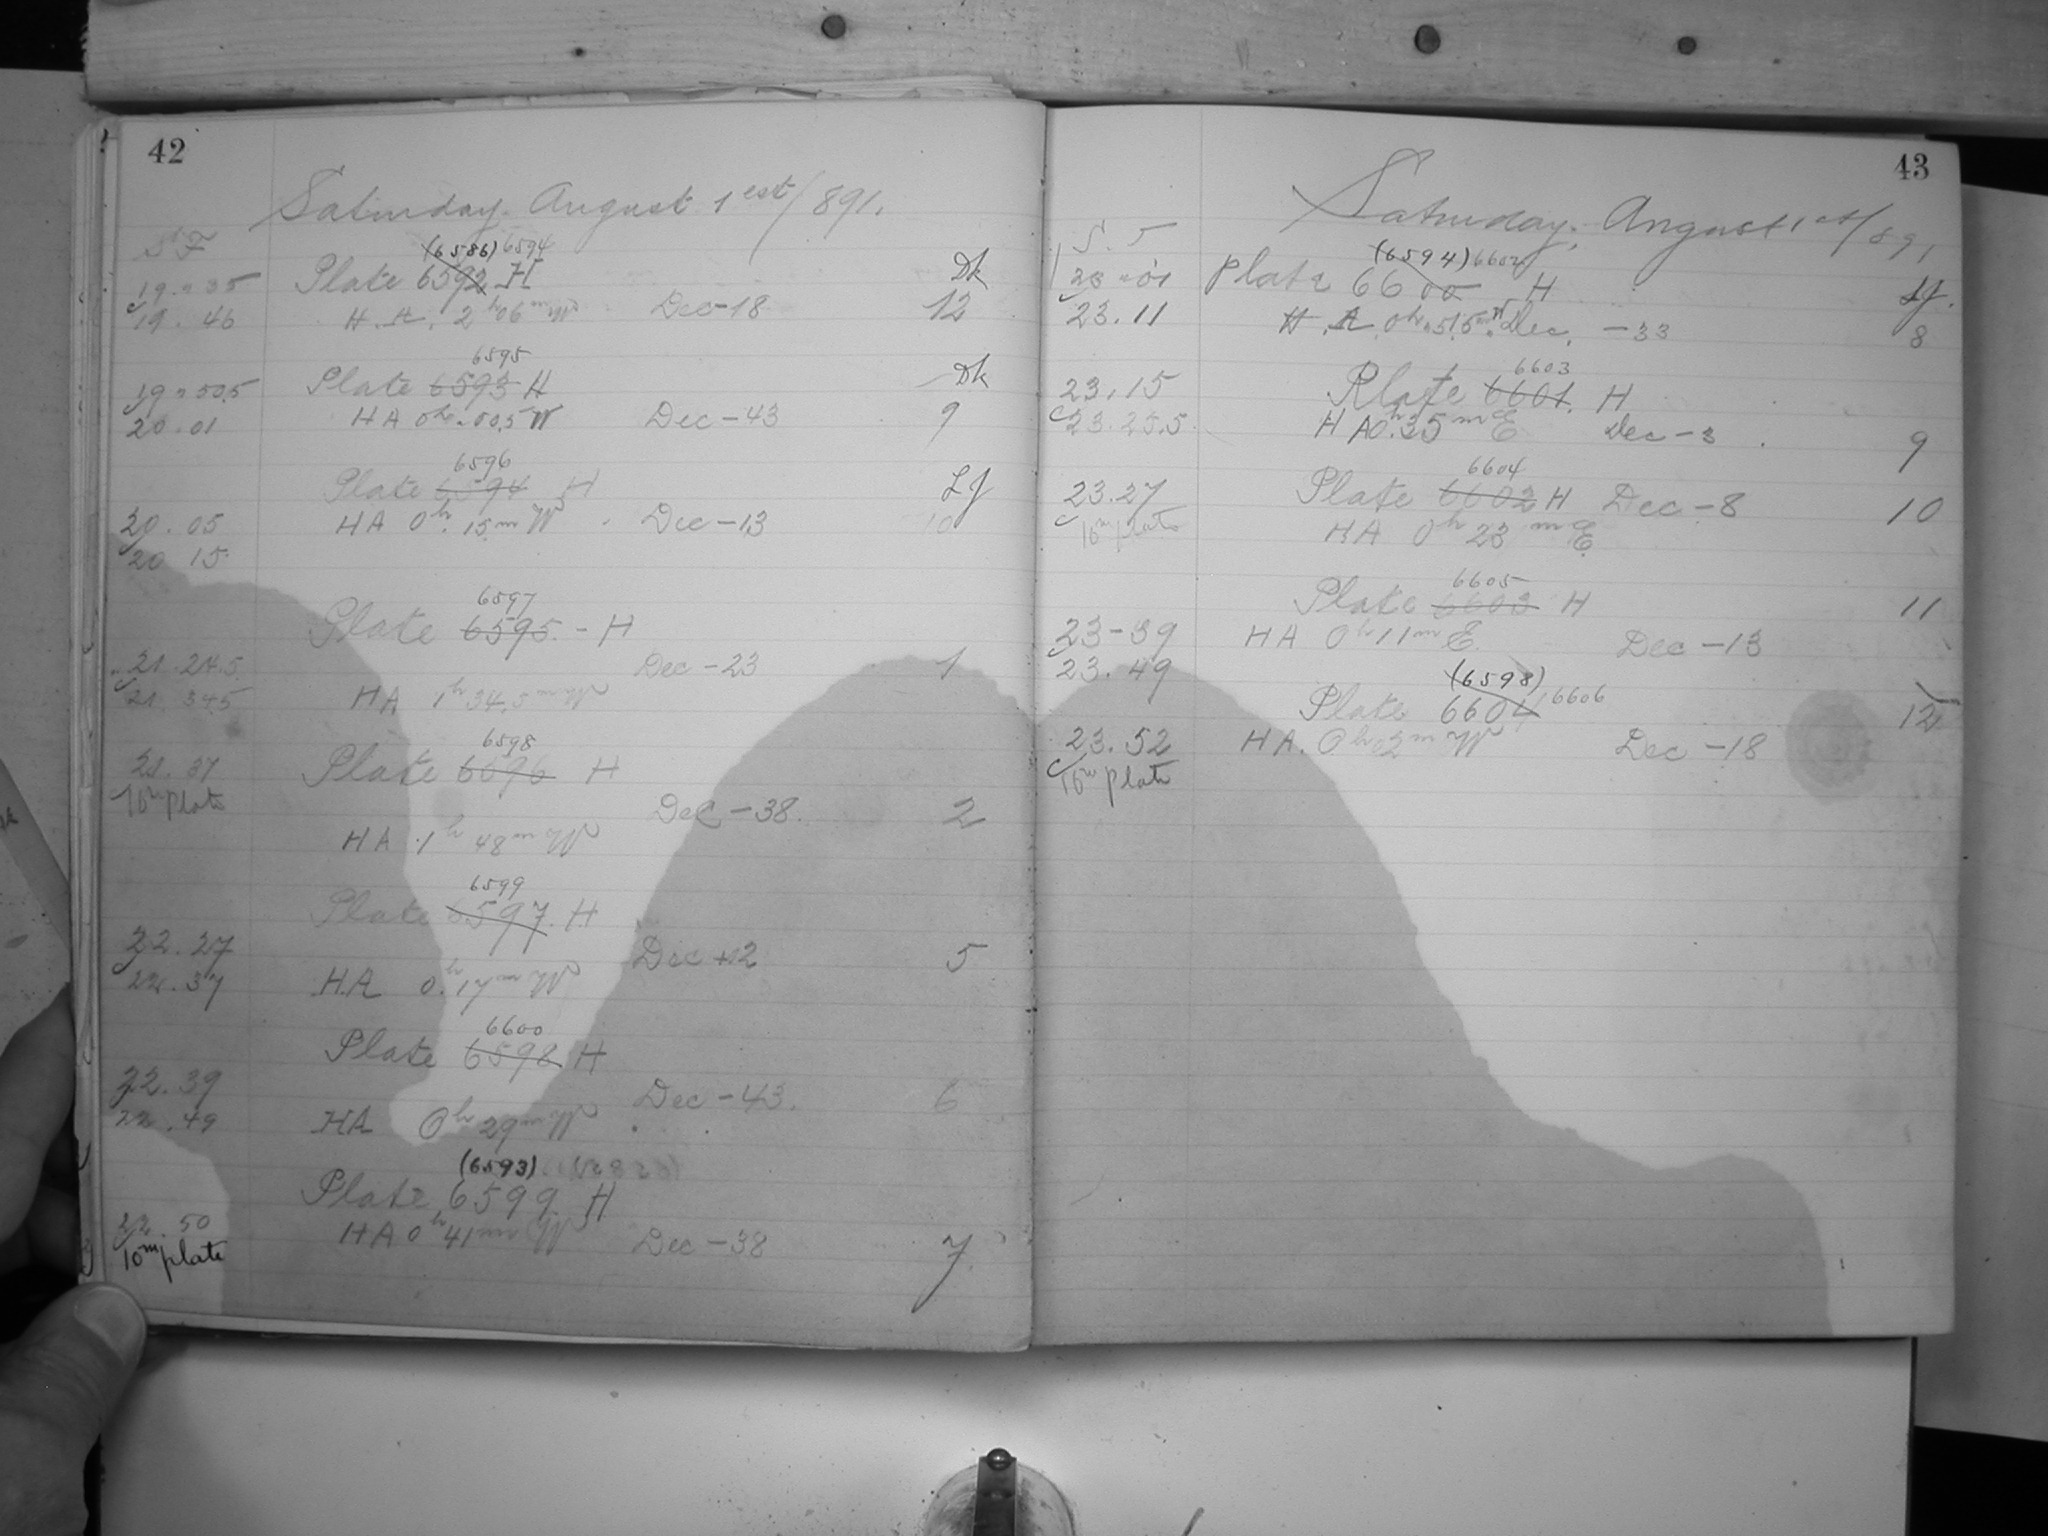 42
Saturday. August 1est/891.
(6586) 6594
Plate 6592 H Dk
19.35
19.46 H.A. 2h 06m W Dec-18 12
6595
Plate 6593 H Dk
19.50.5
20.01 HA 0h.00.5 W Dec-43 9
6596
Plate 6594 H Lf
20.05 HA 0h.15m W Dec-13 10
20 15
6597
Plate 6595.-H
21.24.5 Dec-23 1
21.34.5 HA 1h 34.5m W
6598
21.37 Plate 6596 H
10m plate Dec-38. 2
HA 1h 48m W
6599
Plate 6597 H
22.27 Dec+12 5
22.37 HA 0h.17m W
6600
Plate 6598 H
22.39 Dec-43. 6
22.49 HA 0h 29m W
(6593)
Plate 6599 H
22.50 HA 0h 41m W Dec-38 7
10m plate
43
Saturday, August 1st/891
S.T
(6594) 6602
23.01 Plate 6600 H Lf.
23.11 H.A. 0h.515m W Dec. -33 8
6603
23.15 Plate 6601. H
23.25.5 HA 0h.35m E Dec-3 9
6604
23.27 Plate 6602 H Dec-8 10
10m plate HA 0h 23m E
6605
Plate 6603 H 11
23-39 HA 0h 11m E Dec-13
23.49
(6598)
Plate 6604 6606 12
23.52 HA. 0h 2m W Dec-18
10m plate